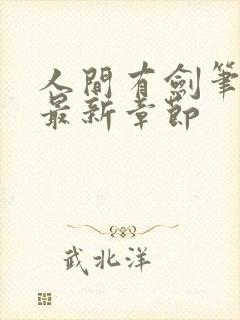 人間有劍筆
最新章節
武北洋